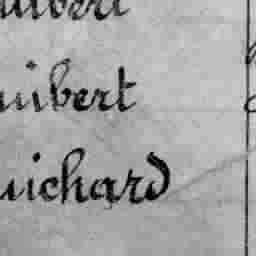 uibert
uibert
uichard